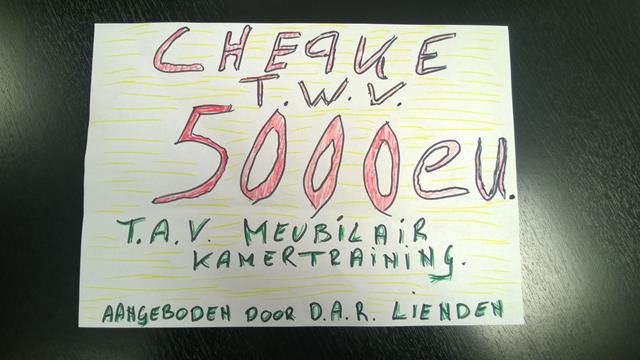 CHEQUE
T.W.V.
5000eu.
T.A.V. MEUBILAIR
KAMERTRAINING.
AANGEBODEN DOOR D.A.R. LIENDEN